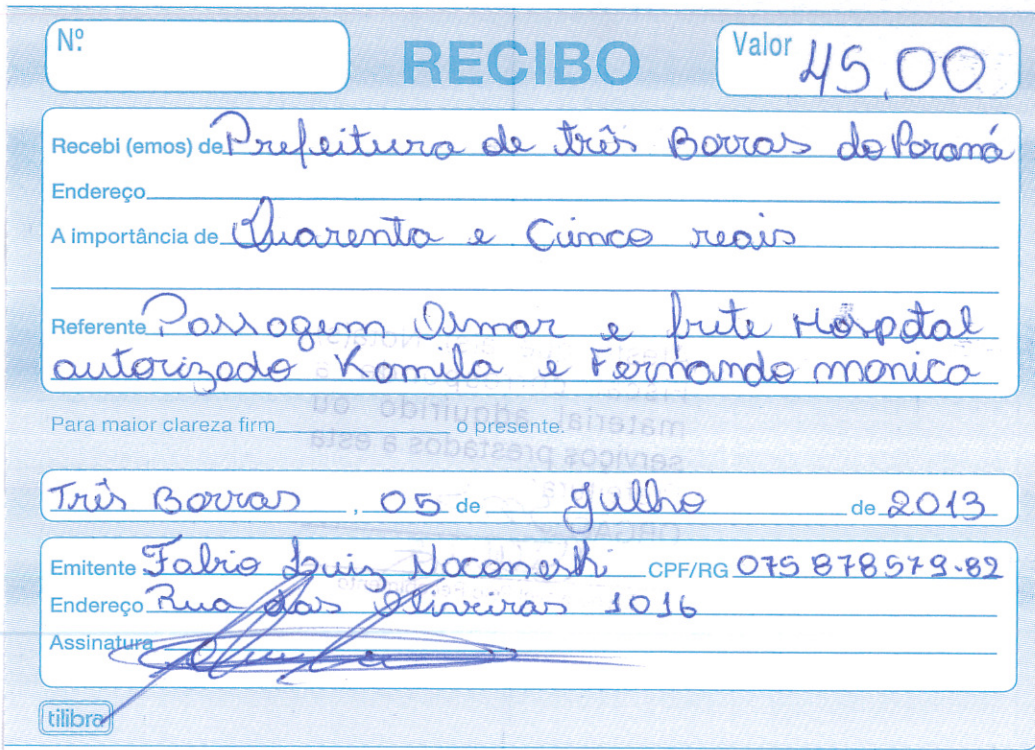 Nº
RECIBO
Valor 45,00
Recebi (emos) de Prefeitura de três Barras do Paraná
Endereço
A importância de Quarenta e Cinco reais
Referente Passagem Osmar e frete Hospital
autorizado Kamila e Fernando monica
Para maior clareza firm o presente.
material adquirido ou
serviços prestados a esta
Três Barras , 05 de Julho de 2013
Emitente Fabio Luiz CPF/RG 075 878579-82
Endereço Rua das Oliveiras 1016
Assinatura
tilibra